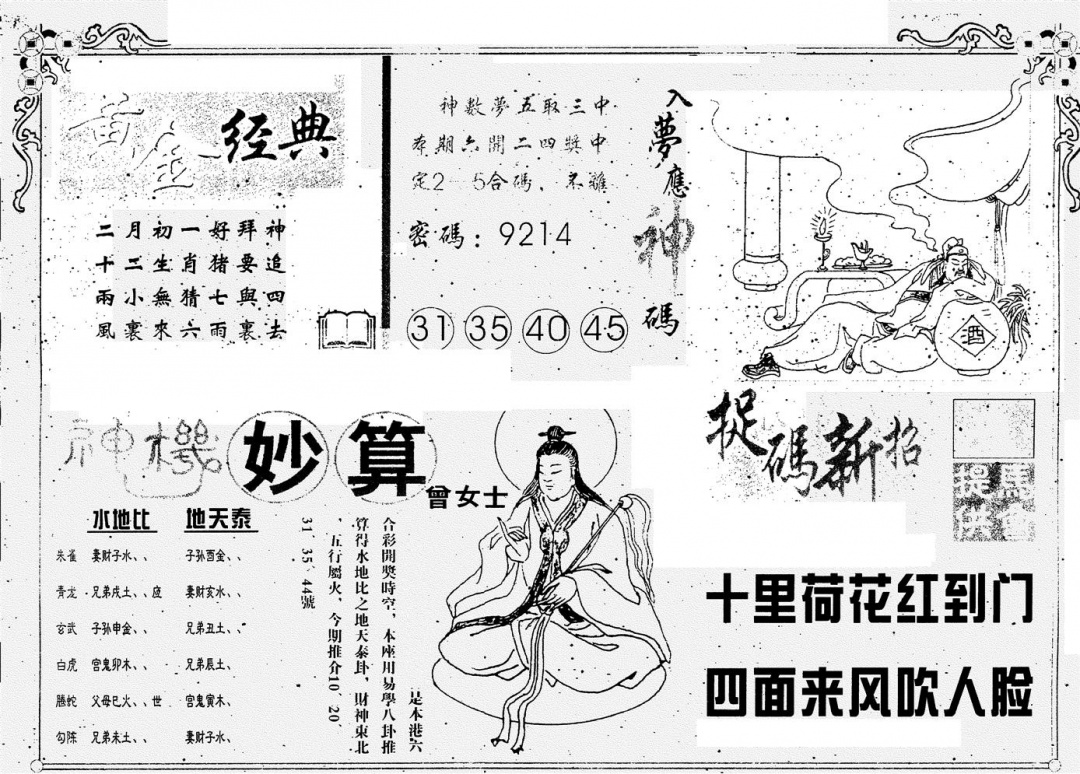 黄金经典
二月初一好拜神
十二生肖猪要追
兩小無猜七與四
風裏來六雨裏去
神數夢五取三中
本期六開二四獎中
定2 5合碼、不離
密碼：9214
31 35 40 45
入夢應神碼
酒
神機妙算
曾女士
水地比 地天泰
朱雀 妻財子水、、 子孙酉金、、
青龙 兄弟戌土、、应 妻財亥水、、
玄武 子孙申金、、 兄弟丑土、、
白虎 宫鬼卯木、、 兄弟辰土、
螣蛇 父母巳火、、世 宫鬼寅木、
勾陈 兄弟未土、、 妻財子水、
是本港六
合彩開獎時空，本座用易學八卦推
算得水地比之地天泰卦，財神東北
，五行屬火，今期推介10 20
31 35 44號
捉碼新招
馬會
提供
十里荷花红到门
四面来风吹人脸